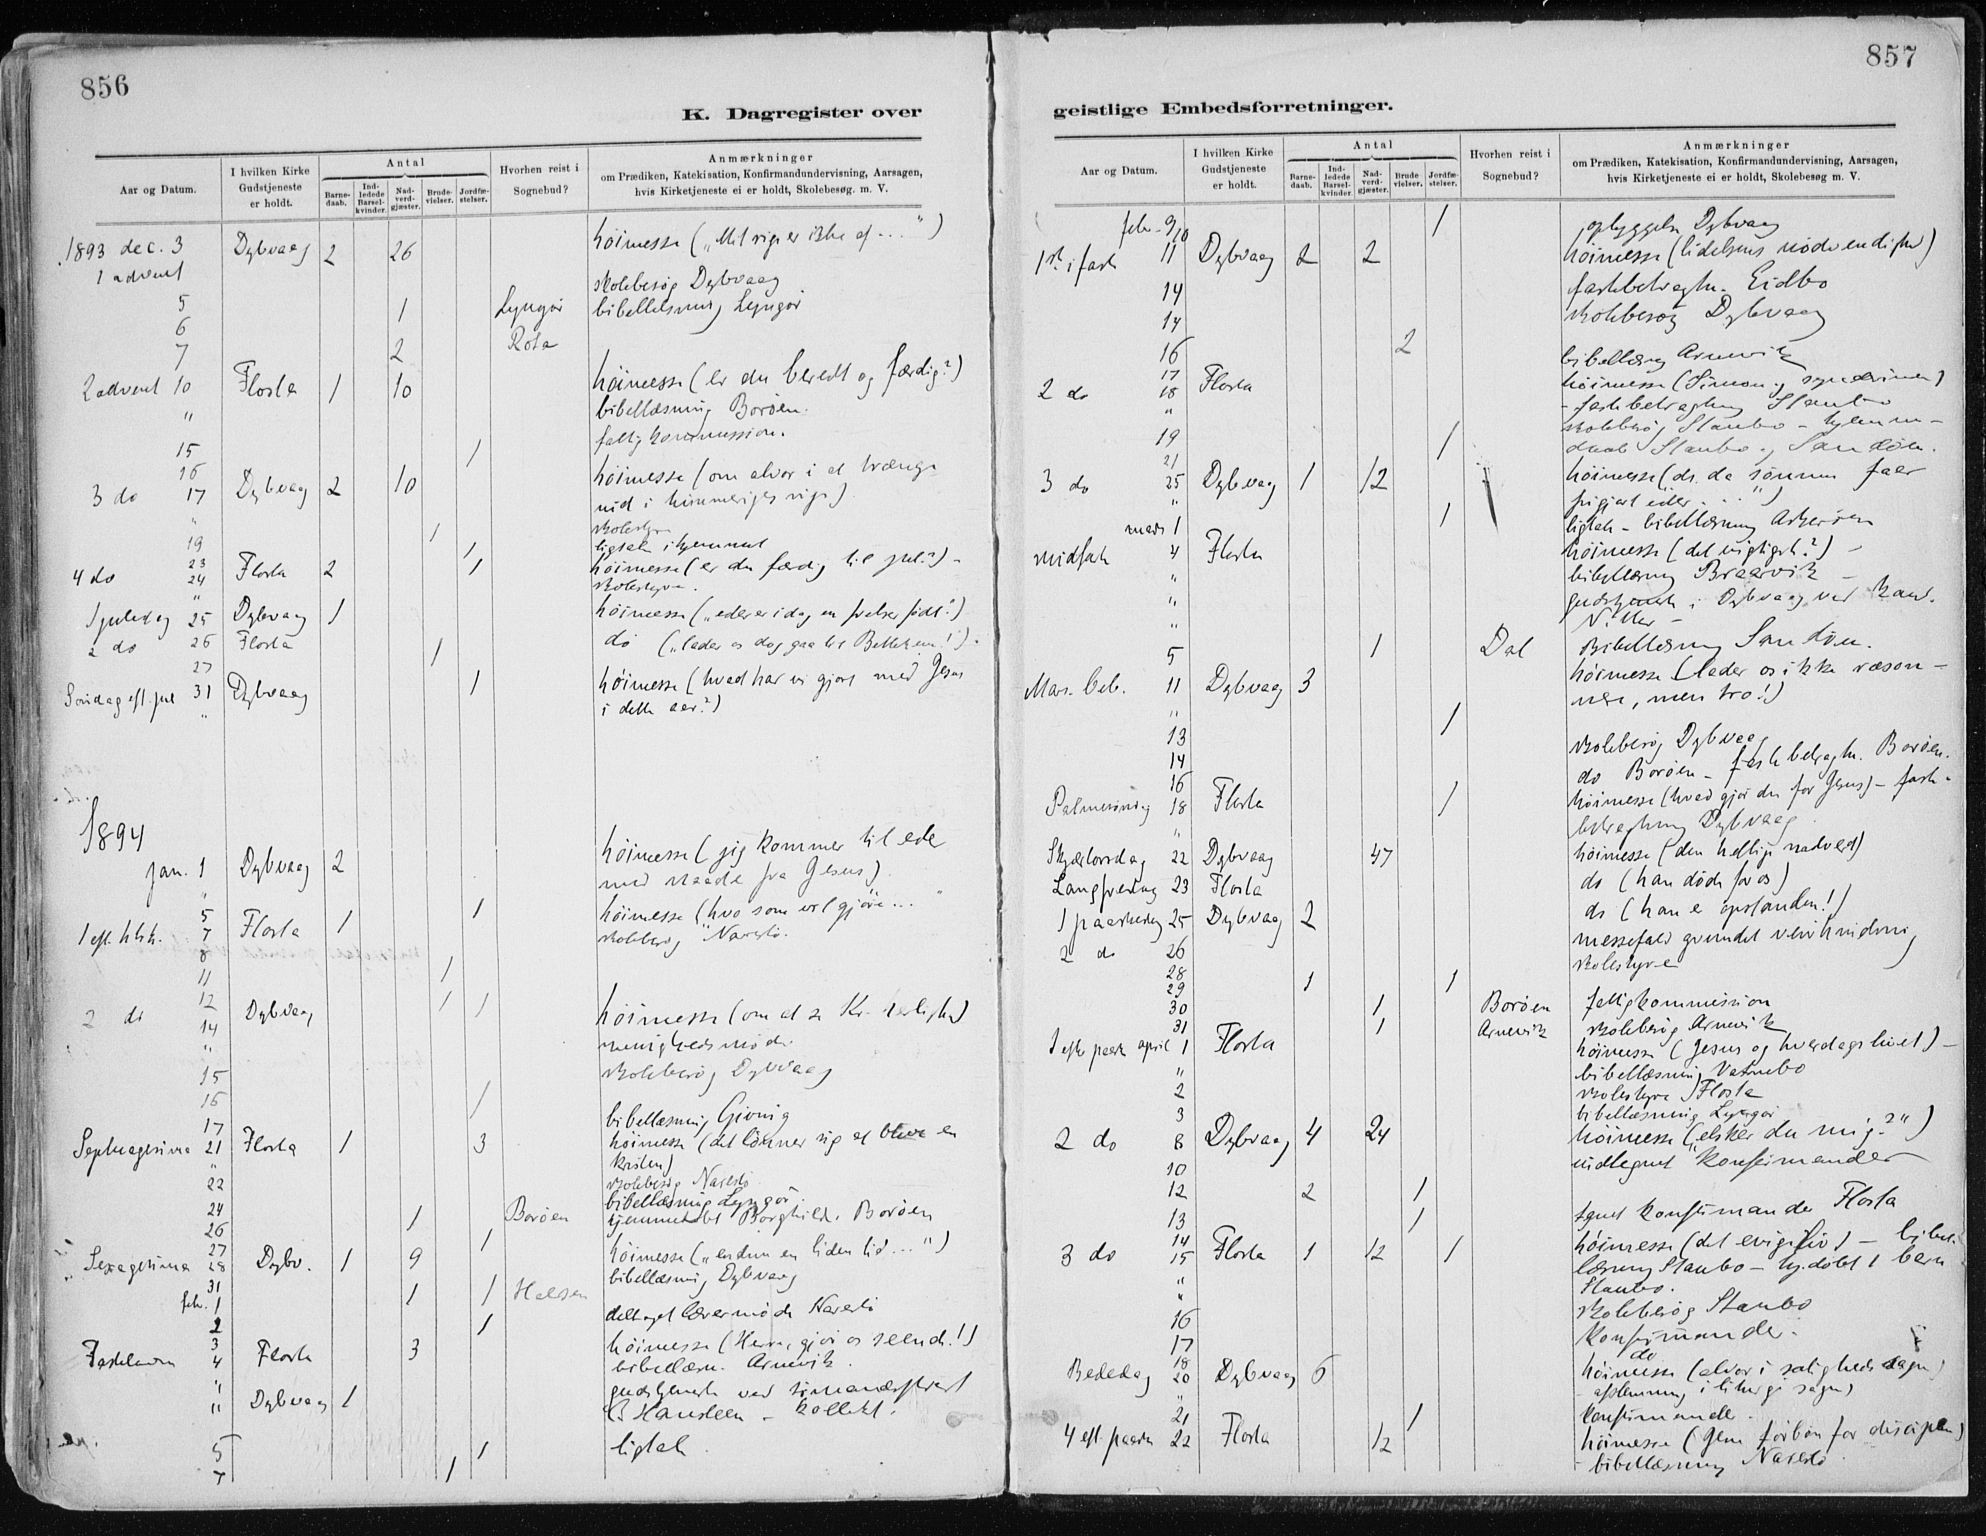 856
K. Dagregister over
Aar og Datum.
I hvilken Kirke Gudstjeneste er holdt.
Antal
Barne-daab.
Ind-ledede Barsel-kvinder.
Nad-verd-gjæster.
Brude-vielser.
Jordfæ-stelser.
Hvorhen reist i Sognebud?
Anmærkninger
om Prædiken, Katekisation, Konfirmandundervisning, Aarsagen,
hvis Kirketjeneste ei er holdt, Skolebesøg. m. V.
1893 dec. 3 Dybvaag 2 26 höimesse („Mit rige er ikke af ... ")
1 advent
skolebesög Dybvaag
5 1 Lyngör bibellæsning Lyngör
6 Rota
7 2
2 advent 10 Flosta 1 10 höimesse (er du beredt og færdig?)
" bibellæsning Borøen.
15 1 fattigkommission.
16
3 do 17 Dybvaag 2 10 höimesse (om alvor i at trænge
ind i himmeriges rige)
" skolestyre
19 1 ligtale i hjemmet
23 1
4 do 24 Flosta 2 1 höimesse (er du færdig til jul?) -
" skolestyre.
1 juledag 25 Dybvaag 1 höimesse („eder er i dag en frelser født")
2 do 26 Flosta do („lader os dog gaa til Betlehem!").
27 1
Söndag eft. jul 31 Dybvaag 1 höimesse (hvad har vi gjort med Jesus
" i dette aar?)
1894
jan. 1 Dybvaag 2 höimesse (jeg kommer til eder
" med naade fra Jesus)
5 1
1 eft. h.3.k. 7 Flosta 1 höimesse (hvo som vil gjöre ... "
8 skolebesög Naresto.
11 1
12 1 1
2 do 14 Dybvaag höimesse (om at se Kr. herlighed)
" menighedsmöde
15 skolebesög Dybvaag
16 1
17 bibellæsning Gjeving
Septuagesima 21 Flosta 1 3 höimesse (det lönner sig at blive en
" kristen)
22 skolebesög Naresto
24 bibellæsning Lyngör.
26 1 Borøen hjemmedöbt Borghild. Borøen
27 1
Sexagesima 28 Dybv. 1 9 höimesse („endnu en liden tid ... ")
31 bibellæsning Dybvaag
febr. 1 1 1
2 deltaget lærermöde Naresto
3 1
Fastelavn 4 Flosta 3 höimesse (Herre, gjör os seende!)
" bibellæsn. Arnevik.
" Dybvaag 1 gudstjeneste ved
Hansteen - kollekt.
5 1 ligtale
7 1
857
geistlige Embedsforretninger.
Aar og Datum.
I hvilken Kirke Gudstjeneste er holdt.
Antal
Barne-daab.
Ind-ledede Barsel-kvinder.
Nad-verd-gjæster.
Brude vielser.
Jordfæ-stelser.
Hvorhen reist i Sognebud?
Anmærkninger
om Prædiken, Katekisation, Konfirmandundervisning, Aarsagen,
hvis Kirketjeneste ei er holdt, Skolebesøg m. V.
febr. 9/10 1 opbyggelse Dybvaag
1 s. i fast 11 Dybvaag 2 2 höimesse (lidelsens nödvendighed)
14 fastebetragtn. Eidbo
14 skolebesög Dybvaag
16 2
17 bibellæsng Arnevik
2 do 18 Flosta höimesse (Simon og synderinden)
" - fastebetragtning Staubo
19 skolebesög Staubo -
21 1 Staubo og Sandöen.
3 do 25 Dybvaag 1 12 höimesse (ds. da sönnen faar
" frigjort eder ... ")
mars 1 1 ligtale - bibellæsning Askeröen
midfaste 4 Flosta höimesse (det vigtigste?) -
" bibellæsning Braarvik -
" gudstjeneste i Dybvaag ved kand.
"
5 1 Dal Bibellæsning Sandöen.
Mar. beb. 11 Dybvaag 3 höimesse (lader os ikke ræson-
nere, men tro!)
" 1
13 skolebesög Dybvaag
14 do Borøen - fastebetragtn. Borøen.
16
Palmesöndag 18 Flosta 1 höimesse (hvad gjör du for Jesus) - faste-
" betragtning Dybvaag
Skjærtorsdag 22 Dybvaag 47 höimesse (den hellige nadverd)
Langfredag 23 Flosta do (han döde for os)
1 paaskedag 25 Dybvaag 2 do (han er opstanden!)
2 do 26 messefald grundet veirhindring
28 skolestyre
29 1 1
30 1 Borøen fattigkommission
31 1 Arnevik skolebesög Arnevik
1 eft. paask april 1 Flosta höimesse (Jesus og hverdagslivet) -
" bibellæsning Vatnebo
2 skolestyre Flosta
3 bibellæsning Lyngör
2 do 8 Dybvaag 4 24 höimesse („elsker du mig?")
10 indtegnet konfirmander
12 2 1
13 1 tegnet konfirmander Flosta
14
3 do 15 Flosta 1 12 1 höimesse (det evige liv) - bibel-
" læsning Staubo - hj.döbt 1 barn
" Staubo.
16 skolebesög Staubo
17 Konfirmander.
18 do
Bededag 20 Dybvaag 6 höimesse (alvor i saligheds sagen)
" - afstemning i liturgi sagen)
21 1 konfirmander.
4 eft. paask 22 Flosta 12 höimesse (Jesu forbön for disciplene)
- bibellæsning Naresto